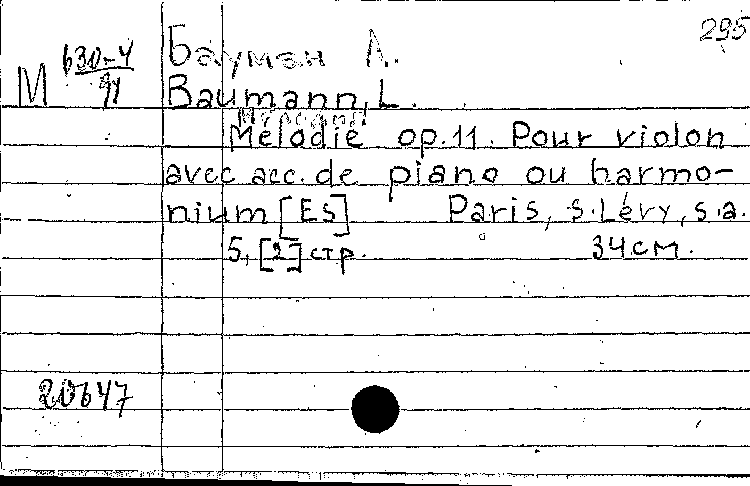 295
Бауман Л.
М 630-4/91
Baumann, L.
Mélodie op.11. Pour violon
avec acc. de piano ou harmo-
nium [Es] Paris, S. Lévy, s.a.
5, [2] стр. 34 см.
20647